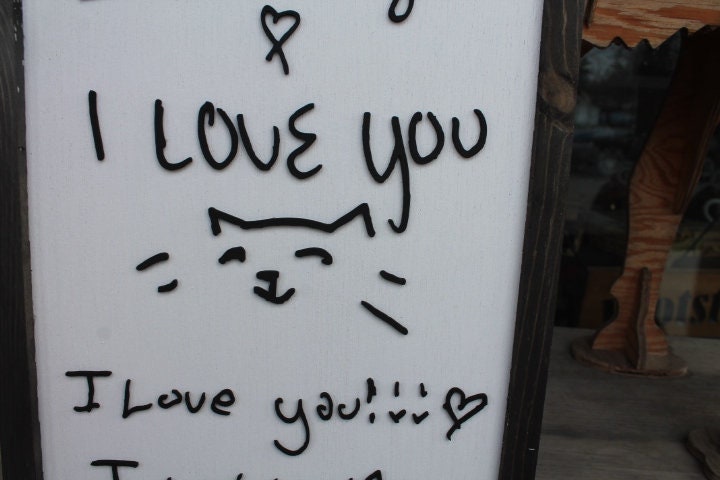 I LOVE you
I Love you!!!!